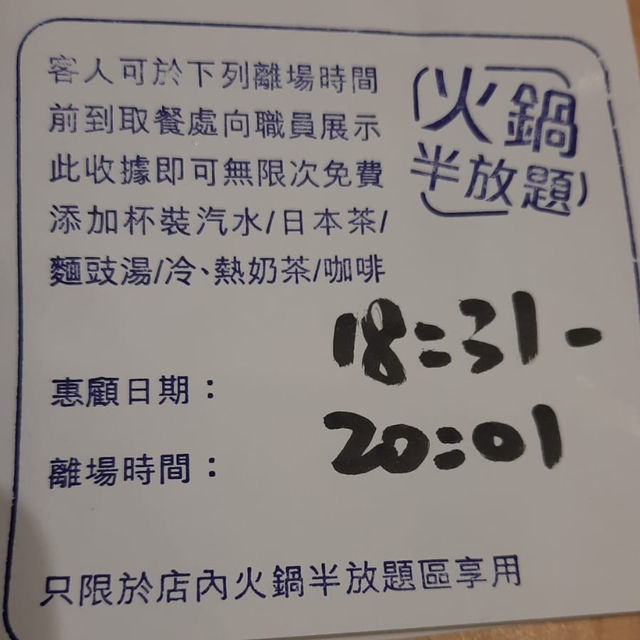 火鍋
半放題
客人可於下列離場時間
前到取餐處向職員展示
此收據即可無限次免費
添加杯裝汽水/日本茶/
麵豉湯/冷、熱奶茶/咖啡
18:31-
惠顧日期：
20:01
離場時間：
只限於店內火鍋半放題區享用